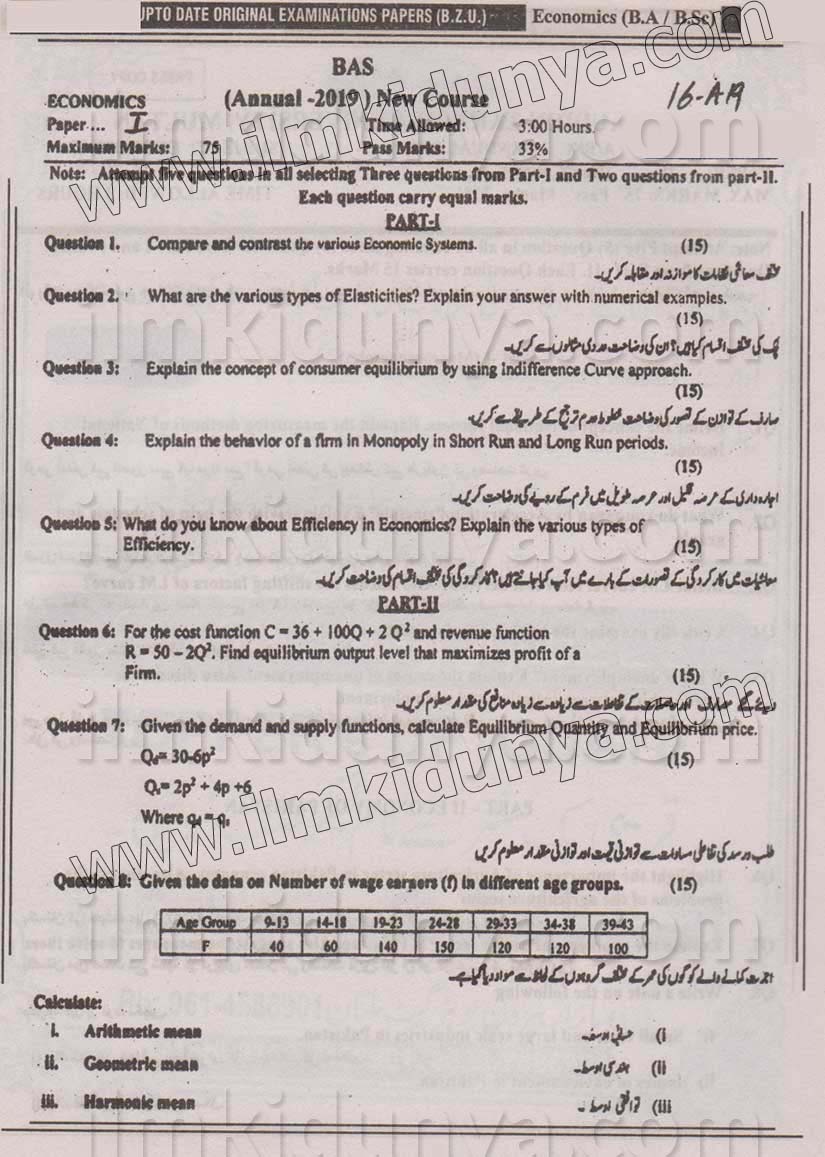 UPTO DATE ORIGINAL EXAMINATIONS PAPERS (B.Z.U.) Economics (B.A / B.Sc)
BAS
16-A19
ECONOMICS (Annual -2019) New Course
Paper ... I Time Allowed: 3:00 Hours.
Maximum Marks: 75 Pass Marks: 33%
Note: Attempt five questions in all selecting Three questions from Part-I and Two questions from part-II.
Each question carry equal marks.
PART-I
Question 1. Compare and contrast the various Economic Systems. (15)
مختلف معاشی نظامات کا موازنہ اور مقابلہ کریں۔
Question 2. What are the various types of Elasticities? Explain your answer with numerical examples.
(15)
لچک کی مختلف اقسام کیا ہیں؟ ان کی وضاحت عددی مثالوں سے کریں۔
Question 3: Explain the concept of consumer equilibrium by using Indifference Curve approach.
(15)
صارف کے توازن کے تصور کی وضاحت خطوط عدم ترجیح کے طریقے سے کریں۔
Question 4: Explain the behavior of a firm in Monopoly in Short Run and Long Run periods.
(15)
اجارہ داری کے عرصہ قلیل اور عرصہ طویل میں فرم کے رویے کی وضاحت کریں۔
Question 5: What do you know about Efficiency in Economics? Explain the various types of
Efficiency. (15)
معاشیات میں کارکردگی کے تصورات کے بارے میں آپ کیا جانتے ہیں؟ کارکردگی کی مختلف اقسام کی وضاحت کریں۔
PART-II
Question 6: For the cost function C = 36 + 100Q + 2 Q² and revenue function
R = 50 – 2Q². Find equilibrium output level that maximizes profit of a
Firm. (15)
کے تفاعلات سے زیادہ سے زیادہ منافع کی مقدار معلوم کریں۔
Question 7: Given the demand and supply functions, calculate Equilibrium Quantity and Equilibrium price.
Qd= 30-6p² (15)
Qs= 2p² + 4p +6
Where qd = qs
طلب و رسد کی تفاعلی مساوات سے توازنی قیمت اور توازنی مقدار معلوم کریں
Question 8: Given the data on Number of wage earners (f) in different age groups. (15)
Age Group 9-13 14-18 19-23 24-28 29-33 34-38 39-43
F 40 60 140 150 120 120 100
اجرت کمانے والے لوگوں کی عمر کے مختلف گروہوں کے لحاظ سے مواد دیا گیا ہے۔
Calculate:
i. Arithmetic mean i) حسابی اوسط۔
ii. Geometric mean ii) ہندسی اوسط۔
iii. Harmonic mean iii) توافقی اوسط۔
www.ilmkidunya.com
www.ilmkidunya.com
ilmkidunya.com
ilmkidunya.com
ilmkidunya.com
ilmkidunya.com
ilmkidunya.com
ilmkidunya.com